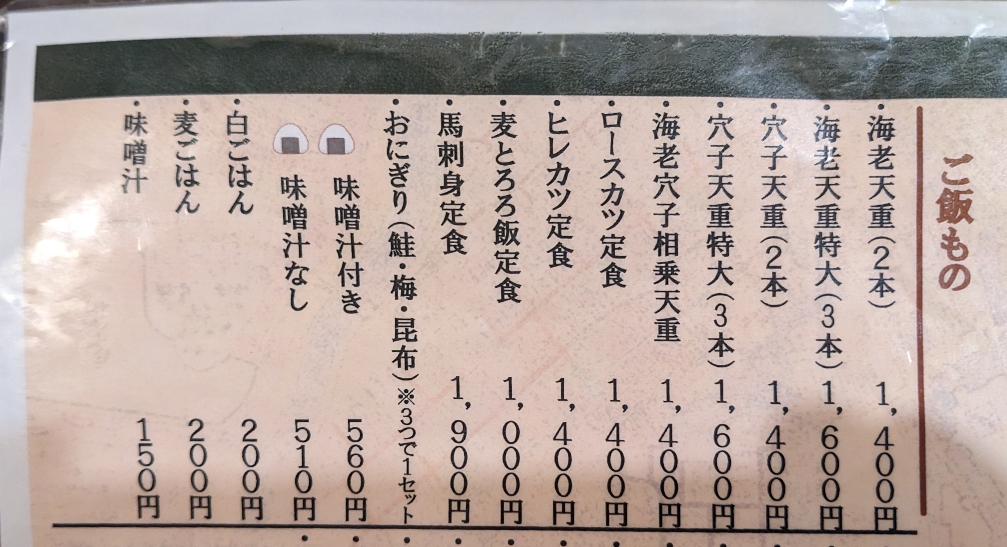 ご飯もの
・海老天重(2本) 1,400円
・海老天重特大(3本) 1,600円
・穴子天重(2本) 1,400円
・穴子天重特大(3本) 1,600円
・海老穴子相乗天重 1,400円
・ロースカツ定食 1,400円
・ヒレカツ定食 1,400円
・麦とろろ飯定食 1,000円
・馬刺身定食 1,900円
・おにぎり(鮭・梅・昆布)※3つで1セット
味噌汁付き 560円
味噌汁なし 510円
・白ごはん 200円
・麦ごはん 200円
・味噌汁 150円